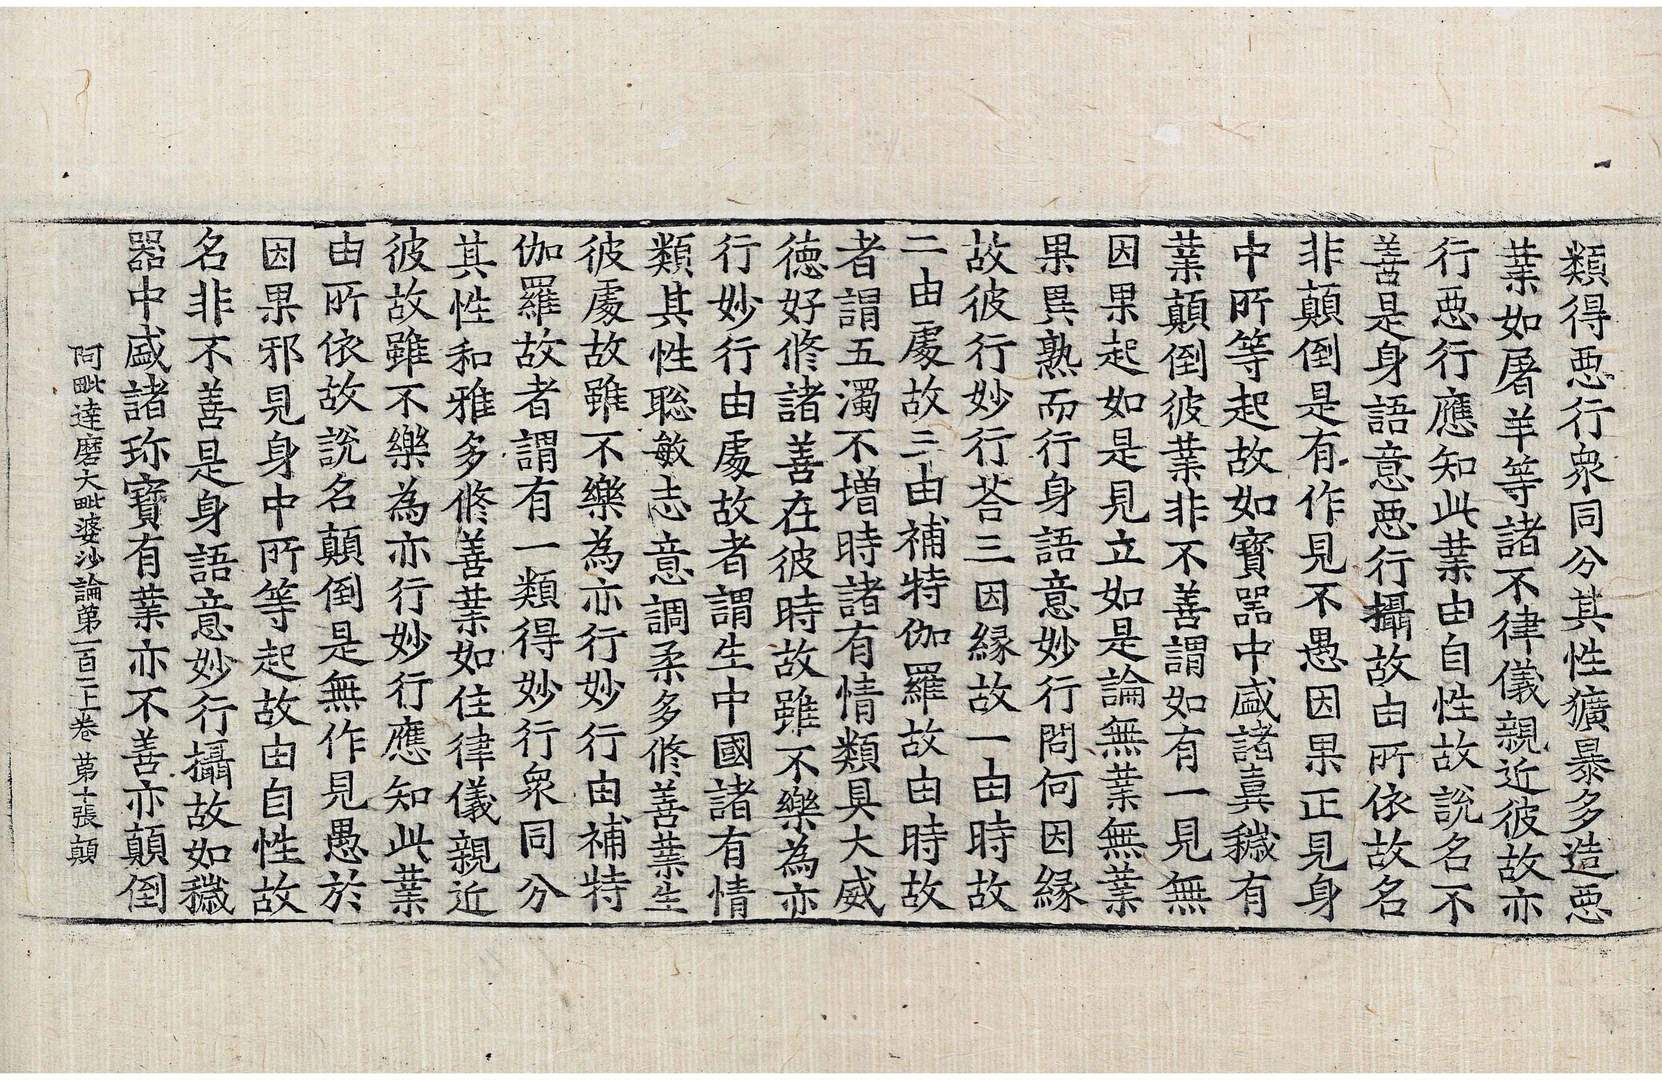 類得惡行衆同分其性獷暴多造惡
業如屠羊等諸不律儀親近彼故亦
行惡行應知此業由自性故說名不
善是身語意惡行攝故由所依故名
非顛倒是有作見不愚因果正見身
中所等起故如寶器中盛諸糞穢有
業顛倒彼業非不善謂如有一見無
因果起如是見立如是論無業無業
果異熟而行身語意妙行問何因緣
故彼行妙行荅三因緣故一由時故
二由處故三由補特伽羅故由時故
者謂五濁不增時諸有情類具大威
德好修諸善在彼時故雖不樂為亦
行妙行由處故者謂生中國諸有情
類其性聡敏志意調柔多修善業生
彼處故雖不樂為亦行妙行由補特
伽羅故者謂有一類得妙行衆同分
其性和雅多修善業如住律儀親近
彼故雖不樂為亦行妙行應知此業
由所依故說名顛倒是無作見愚於
因果邪見身中所等起故由自性故
名非不善是身語意妙行攝故如穢
器中盛諸珎寶有業亦不善亦顛倒
阿毗達磨大毗婆沙論第一百二十卷 第十張 顛